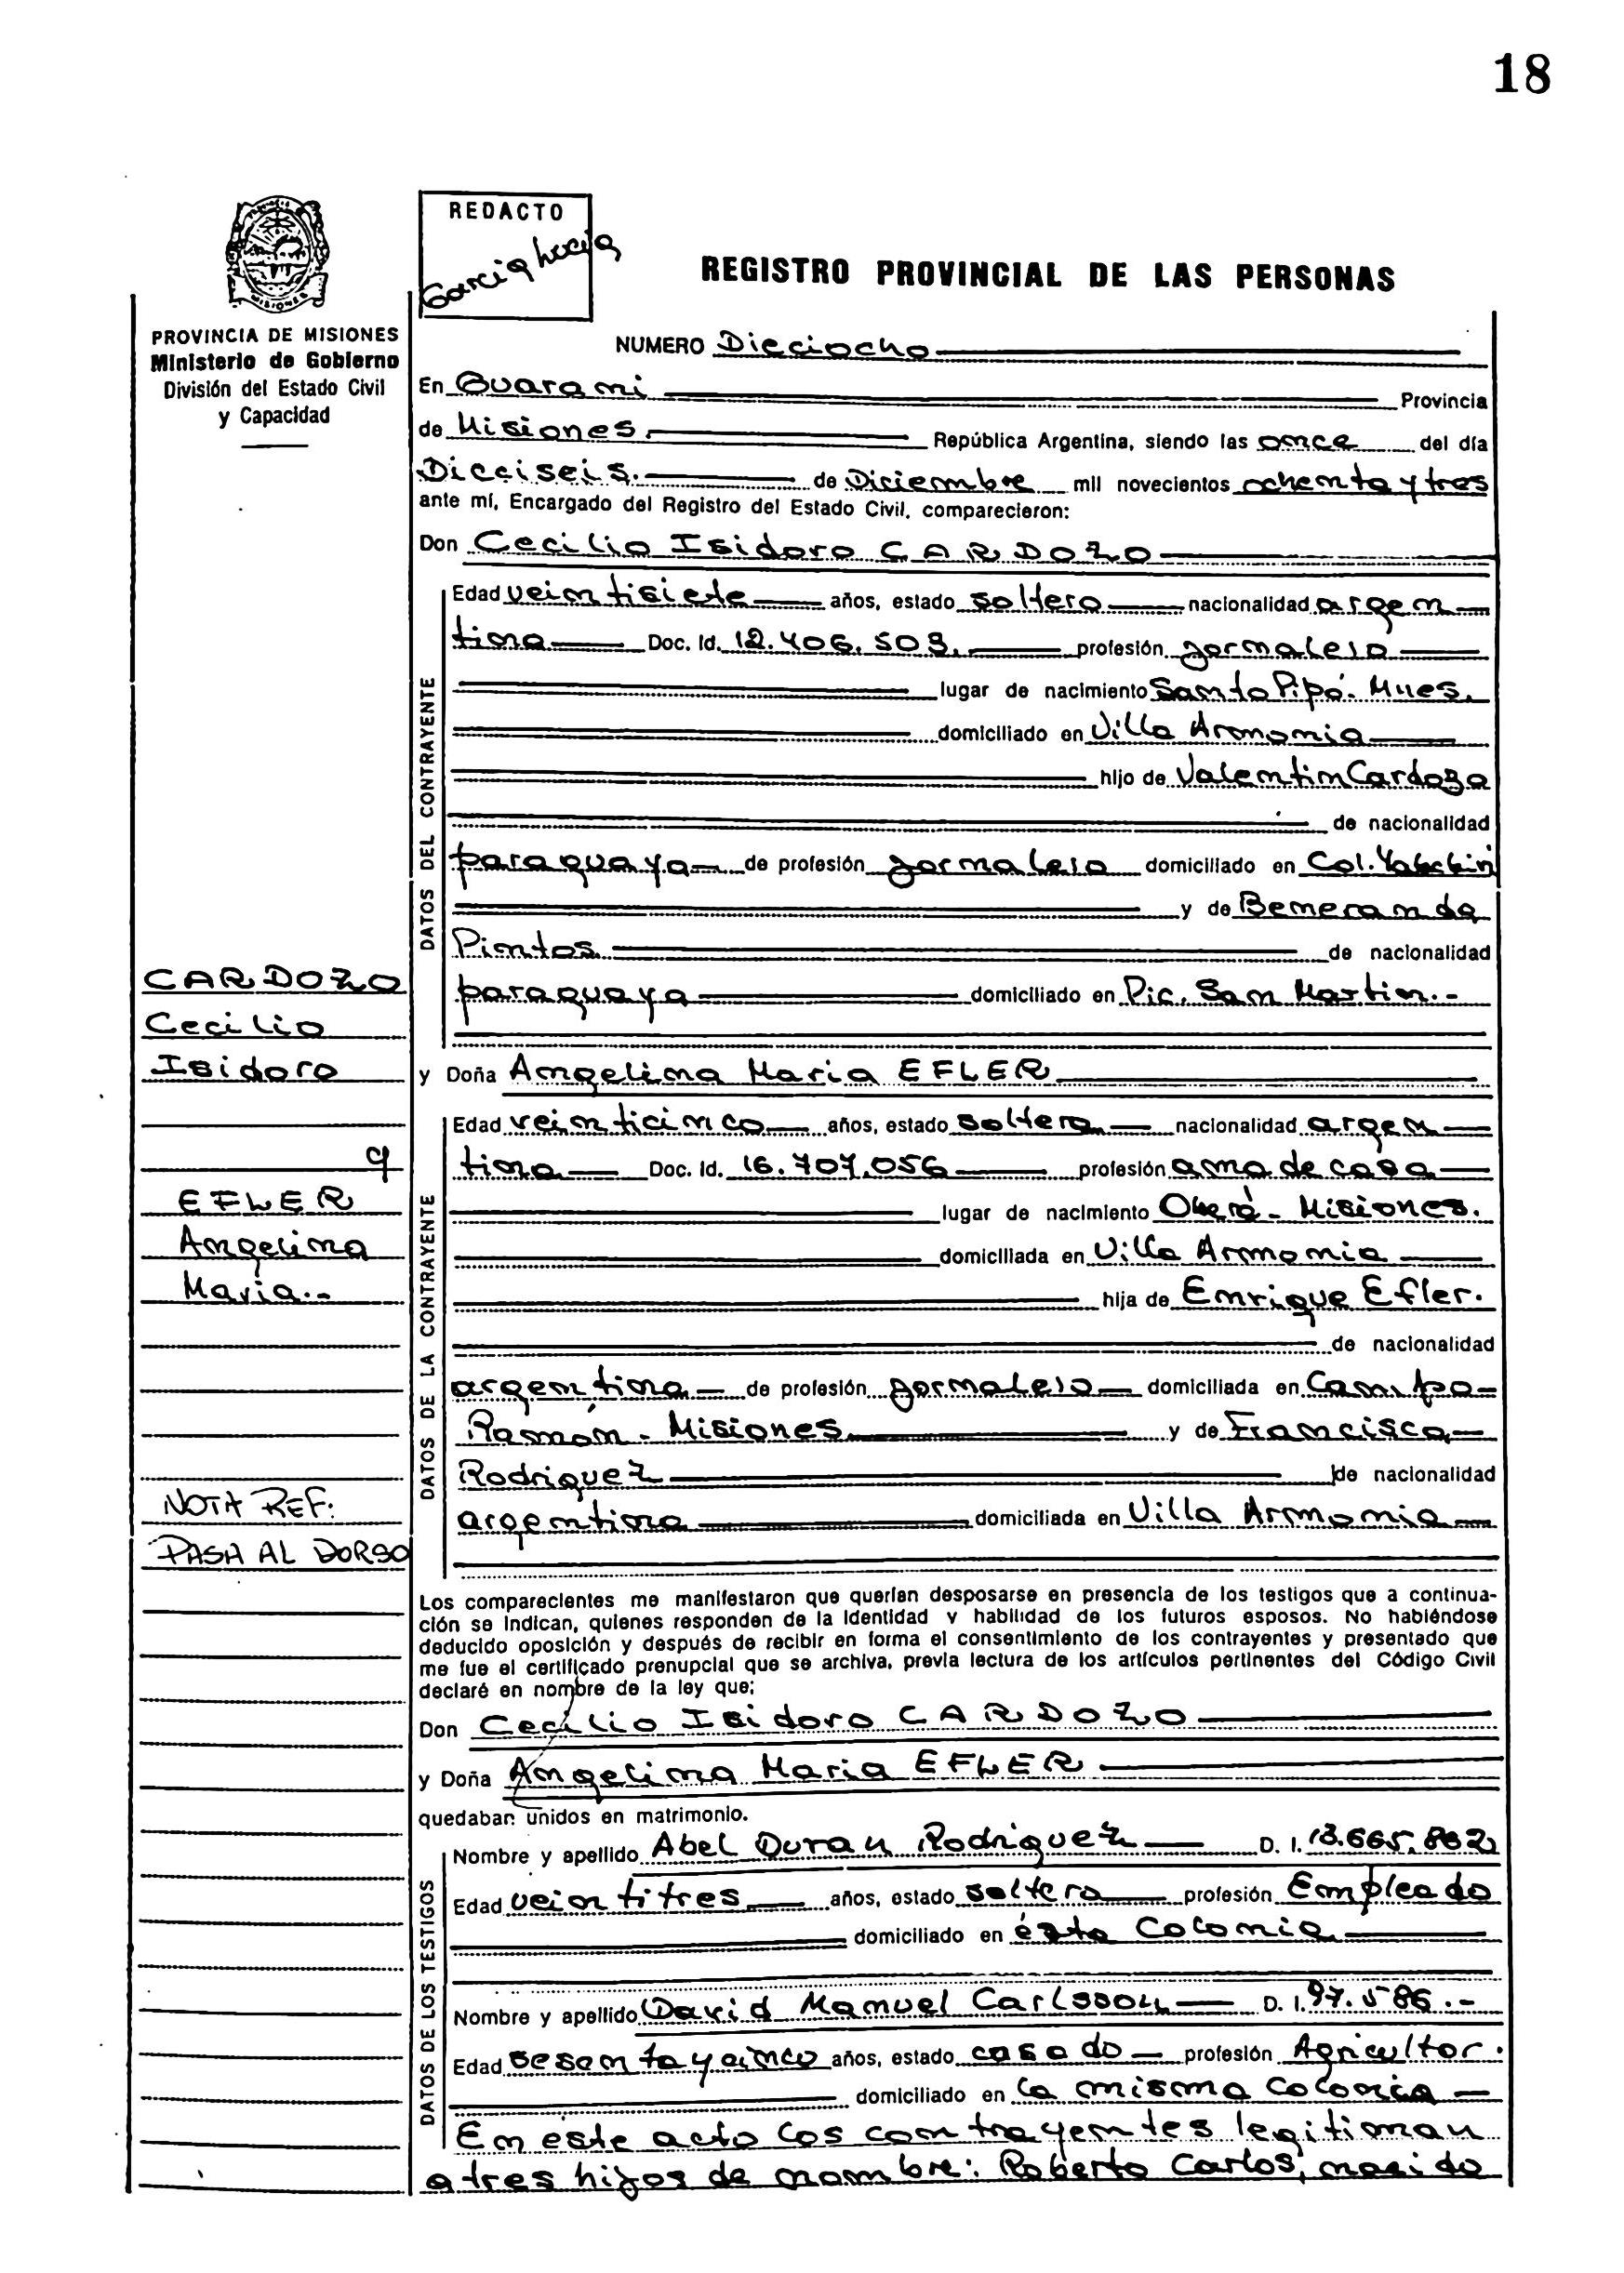 18
REDACTO
Garcia Lucia
REGISTRO PROVINCIAL DE LAS PERSONAS
PROVINCIA DE MISIONES
Ministerio de Gobierno
División del Estado Civil
y Capacidad
NUMERO Dieciocho
En Guarani Provincia
de Misiones. República Argentina, siendo las once del día
Dieciseis. de Diciembre mil novecientos ochenta y tres
ante mí, Encargado del Registro del Estado Civil, comparecieron:
Don Cecilio Isidoro CARDOZO
DATOS DEL CONTRAYENTE
Edad veintisiete años, estado soltero nacionalidad argen
tina Doc. Id. 12.406.509. profesión jornalero
lugar de nacimiento Santo Pipó. Mnes.
domiciliado en Villa Armonia
hijo de Valentin Cardozo
de nacionalidad
paraguaya de profesión jornalero domiciliado en Col.
y de Bemeranda
Pintos de nacionalidad
paraguaya domiciliado en Pic. San Martin.-
CARDOZO
Cecilio
Isidoro
y
EFLER
Angelina
Maria.-
NOTA REF:
PASA AL DORSO
y Doña Angelina Maria EFLER
DATOS DE LA CONTRAYENTE
Edad veinticinco años, estado soltera nacionalidad argen
tina Doc. Id. 16.707.056 profesión ama de casa
lugar de nacimiento Oberá - Misiones.
domiciliada en Villa Armonia
hija de Enrique Efler.
de nacionalidad
argentina de profesión jornalero domiciliada en Campo
Ramón - Misiones y de Francisca
Rodriguez de nacionalidad
argentina domiciliada en Villa Armonia
Los comparecientes me manifestaron que querían desposarse en presencia de los testigos que a continua-
ción se indican, quienes responden de la identidad y habilidad de los futuros esposos. No habiéndose
deducido oposición y después de recibir en forma el consentimiento de los contrayentes y presentado que
me fue el certificado prenupcial que se archiva, previa lectura de los artículos pertinentes del Código Civil
declaré en nombre de la ley que:
Don Cecilio Isidoro CARDOZO
y Doña Angelina Maria EFLER
quedaban unidos en matrimonio.
DATOS DE LOS TESTIGOS
Nombre y apellido Abel Duran Rodriguez D. I. 13.665.862
Edad veintitres años, estado soltero profesión Empleado
domiciliado en ésta Colonia
Nombre y apellido David Manuel Carlsson D. I. 97.586.-
Edad sesenta y cinco años, estado casado profesión Agricultor.
domiciliado en la misma Colonia
En este acto los contrayentes legitiman
a tres hijos de nombre: Roberto Carlos, nacido